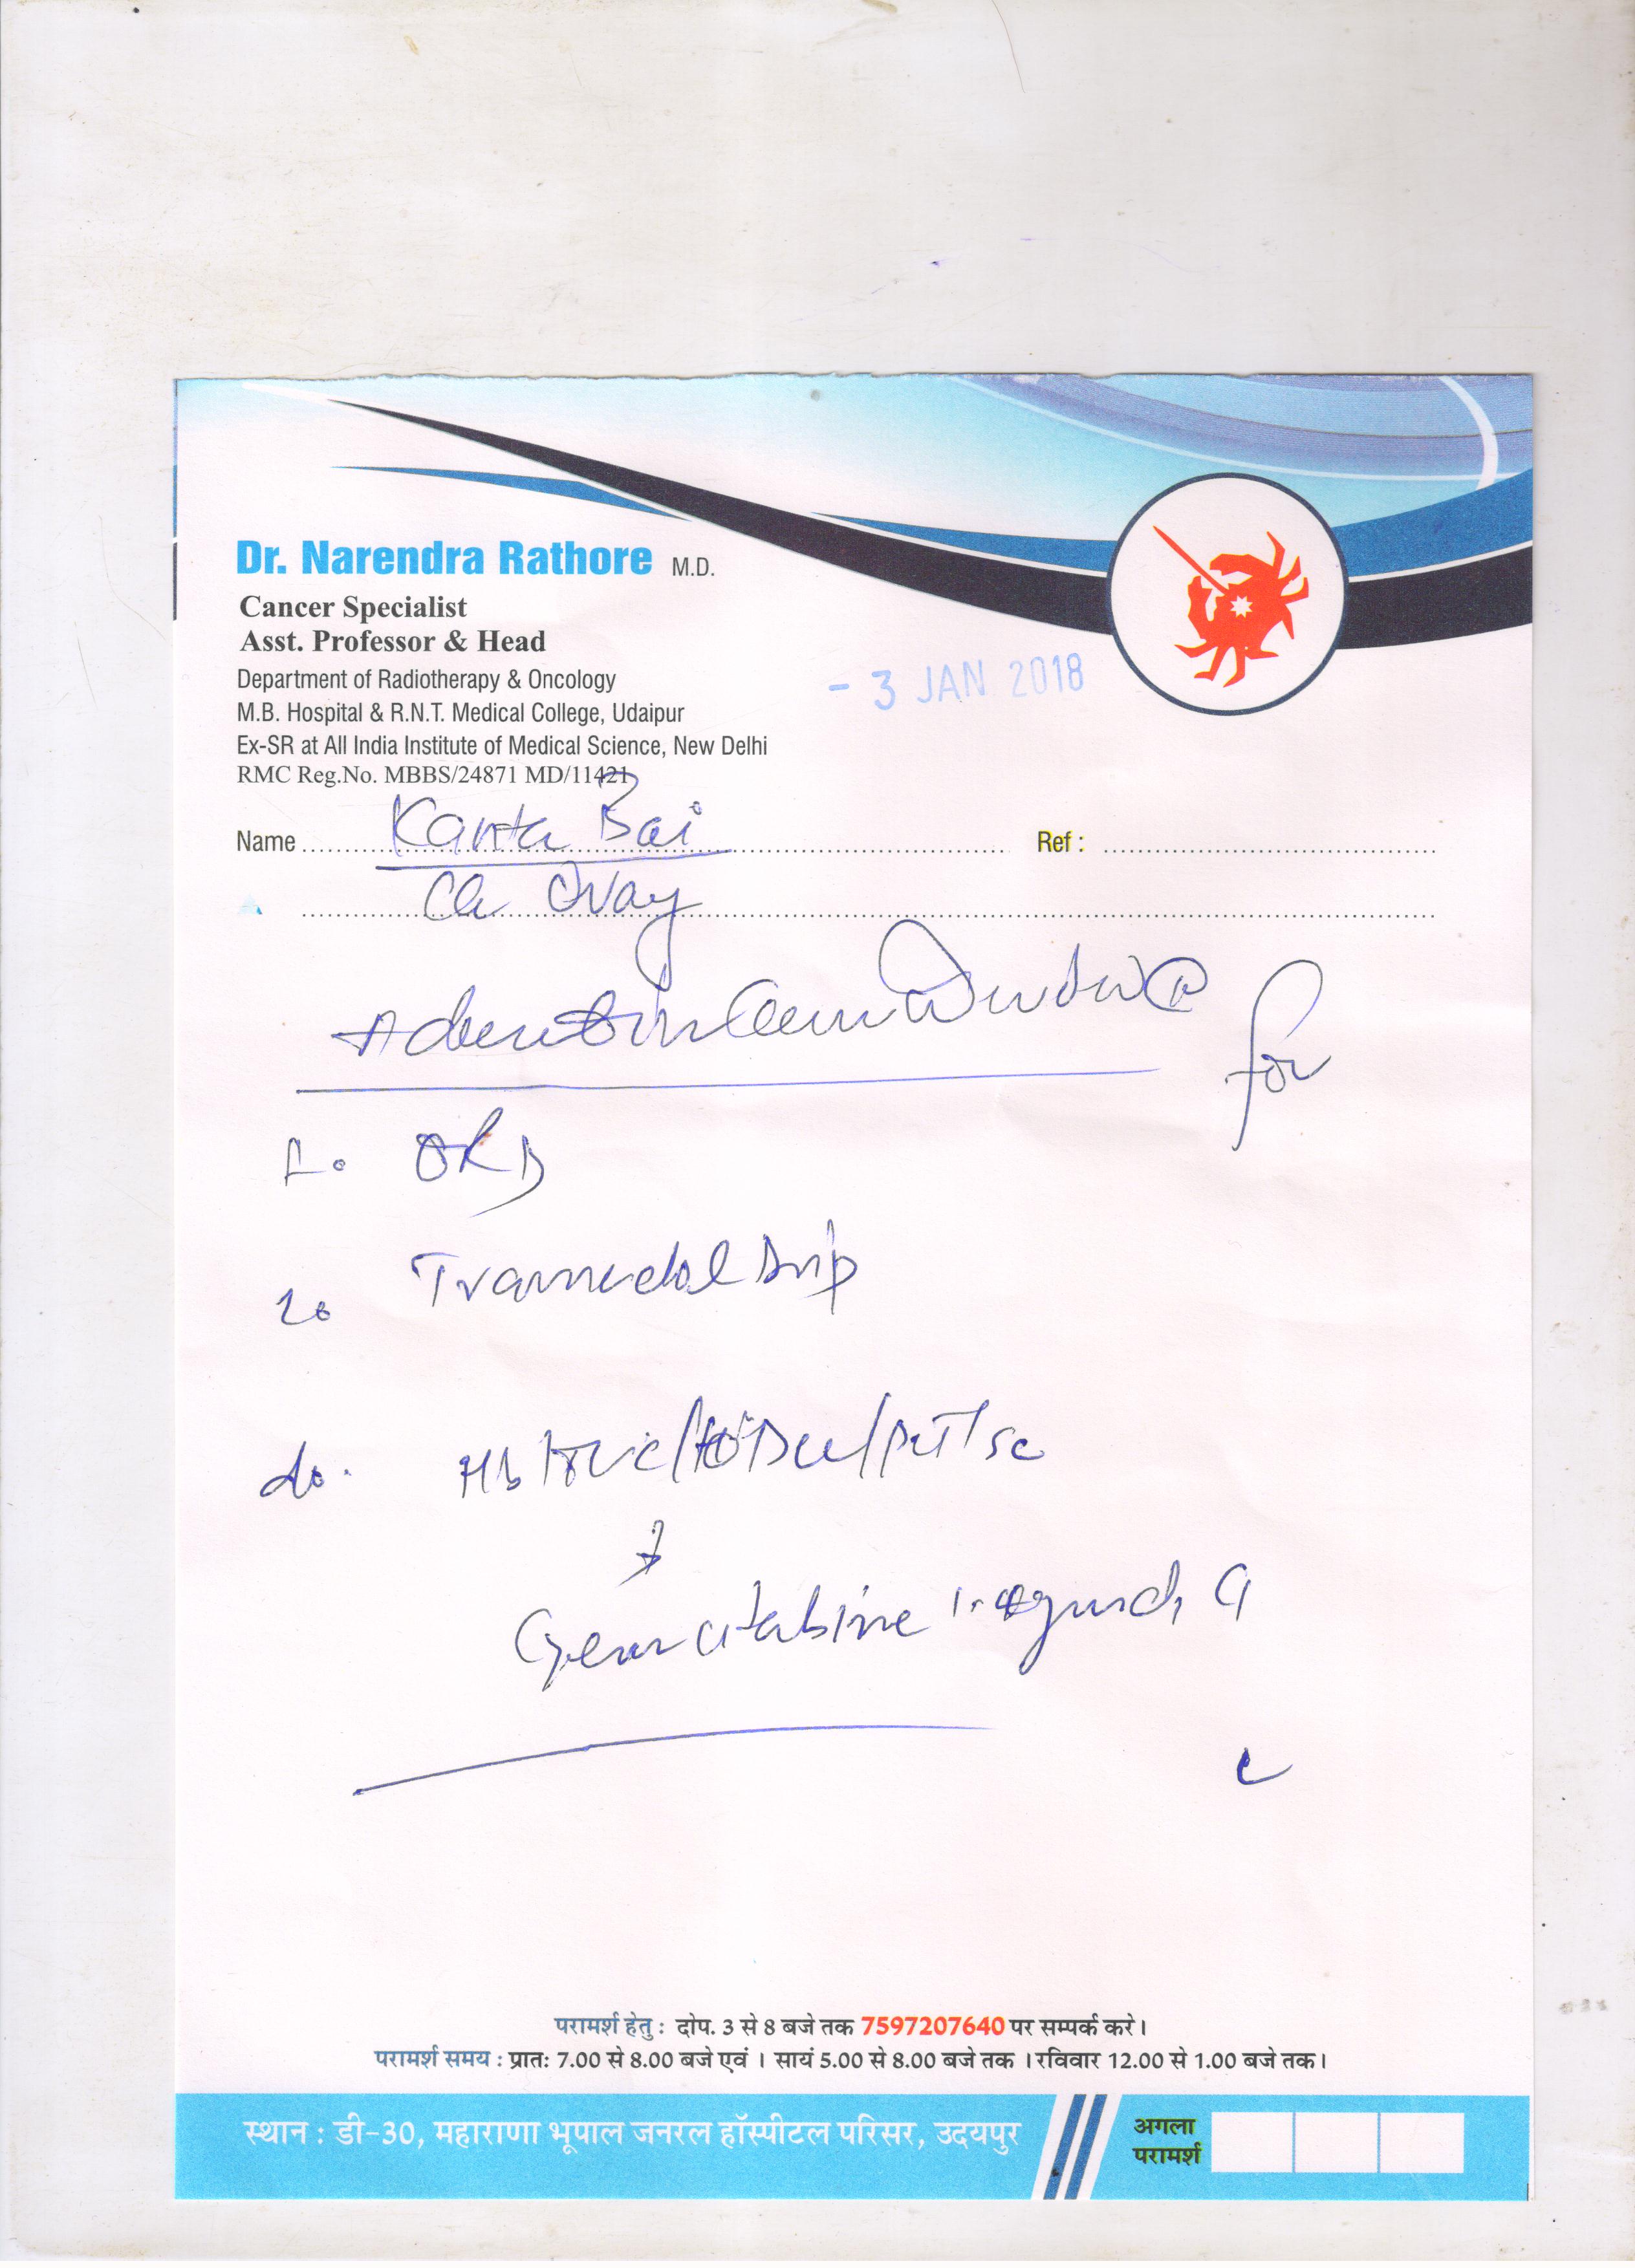 Dr. Narendra Rathore M.D.
Cancer Specialist
Asst. Professor & Head
Department of Radiotherapy & Oncology
M.B. Hospital & R.N.T. Medical College, Udaipur
Ex-SR at All India Institute of Medical Science, New Delhi
RMC Reg.No. MBBS/24871 MD/11421
- 3 JAN 2018
Name Kanta Bai Ref :
Ca Ovay
for
1.
2. Tramadol Drip
Gemcitabine
परामर्श हेतु : दोप. 3 से 8 बजे तक 7597207640 पर सम्पर्क करे।
परामर्श समय : प्रातः 7.00 से 8.00 बजे एवं । सायं 5.00 से 8.00 बजे तक ।रविवार 12.00 से 1.00 बजे तक।
स्थान : डी-30, महाराणा भूपाल जनरल हॉस्पीटल परिसर, उदयपुर
अगला
परामर्श